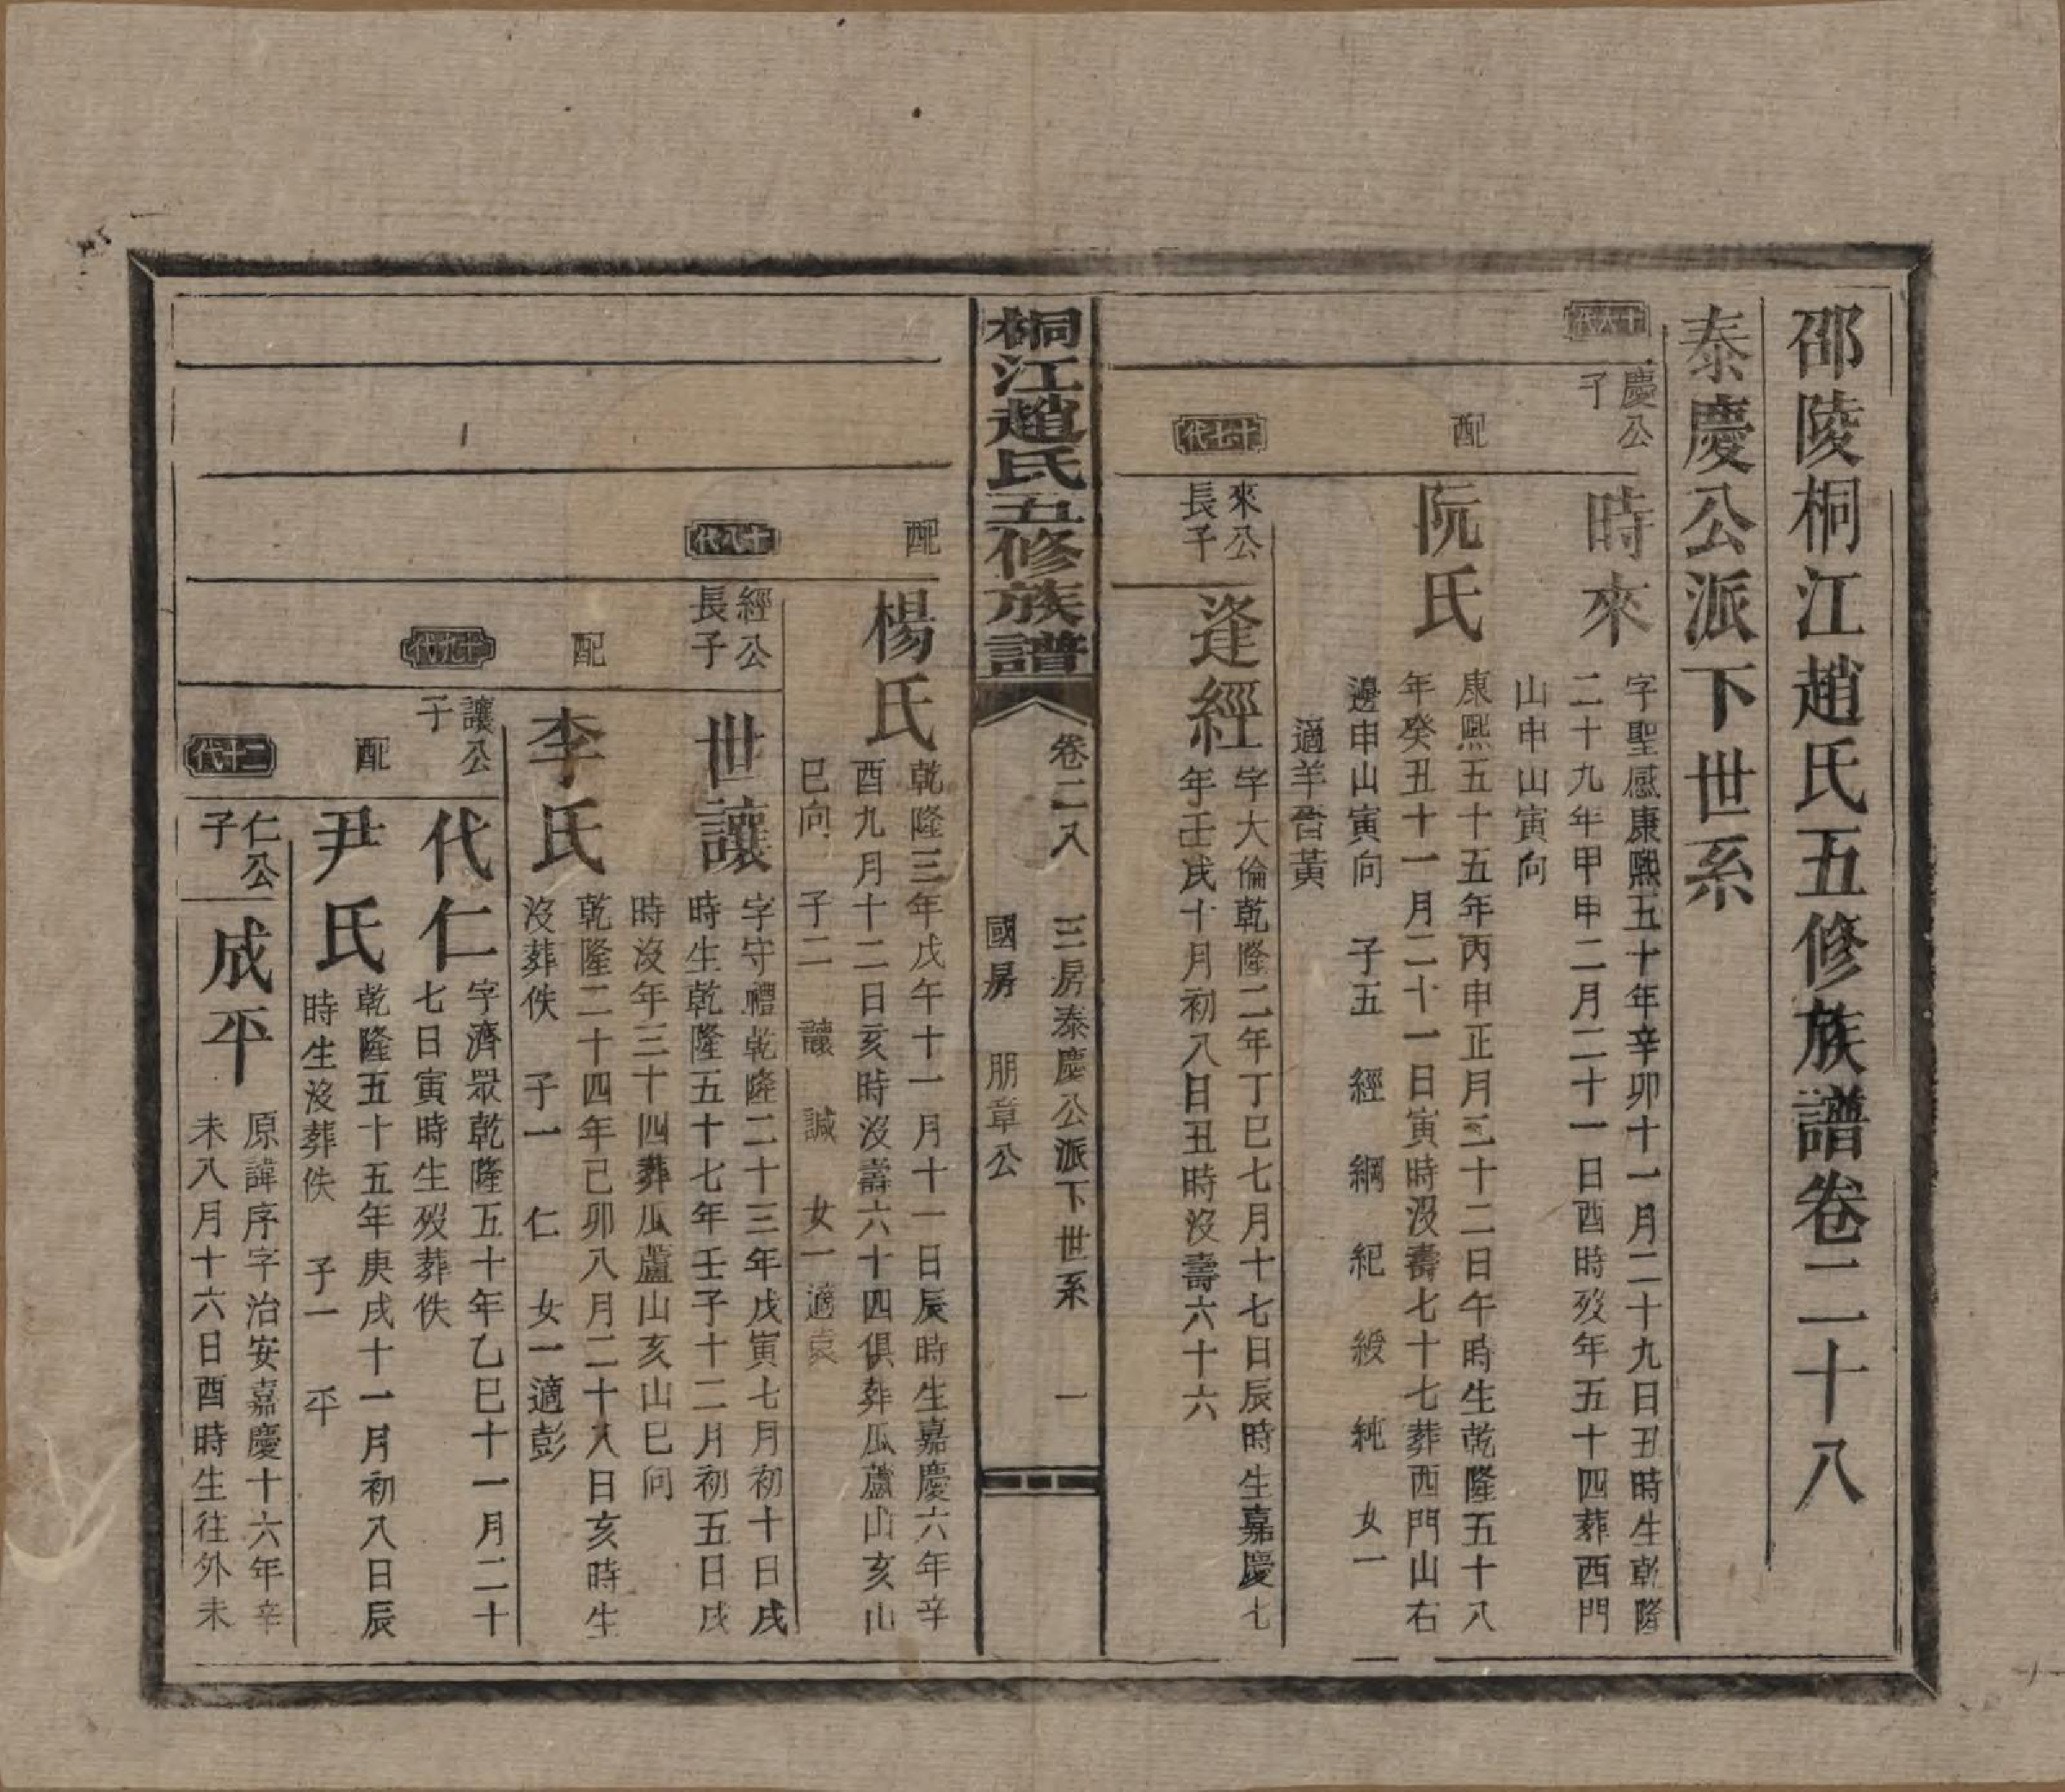 邵陵桐江趙氏五修族譜卷二十八
泰慶公派下世系
十六代
慶公
子
時來
字聖感康熙五十年辛卯十一月二十九日丑時生乾隆
二十九年甲申二月二十一日酉時歿年五十四葬西門
山申山寅向
配
阮氏
康熙五十五年丙申正月二十二日午時生乾隆五十八
年癸丑十一月二十一日寅時沒壽七十七葬西門山右
邊申山寅向 子五 經 綱 紀 綬 純 女一
適羊呰黃
十七代
來公
長子
逢經
字大倫乾隆二年丁巳七月十七日辰時生嘉慶七
年壬戌十月初八日丑時沒壽六十六
桐江趙氏五修族譜
卷二八 三房泰慶公派下世系 一
國房 朋章公
配
楊氏
乾隆三年戊午十一月十一日辰時生嘉慶六年辛
酉九月十二日亥時沒壽六十四俱葬瓜蘆山亥山
巳向 子二 讓 誠 女一適袁
十八代
經公
長子
世讓
字守禮乾隆二十三年戊寅七月初十日戌
時生乾隆五十七年壬子十二月初五日戌
時沒年三十四葬瓜蘆山亥山巳向
配
李氏
乾隆二十四年己卯八月二十八日亥時生
沒葬佚 子一 仁 女一適彭
十九代
讓公
子
代仁
字濟眾乾隆五十年乙巳十一月二十
七日寅時生歿葬佚
配
尹氏
乾隆五十五年庚戌十一月初八日辰
時生沒葬佚 子一 平
二十代
仁公
子
成平
原諱序字治安嘉慶十六年辛
未八月十六日酉時生往外未